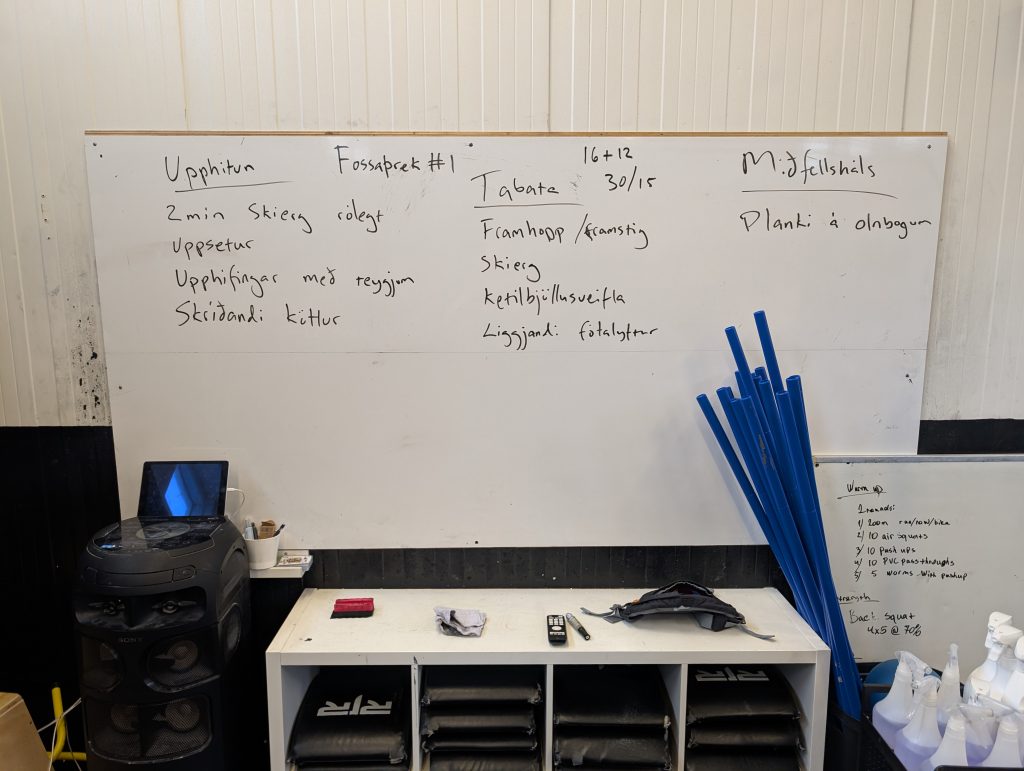 Upphitun
2 min Skierg rólegt
Uppsetur
Upphífingar með teygjum
Skríðandi köttur
Fossaþrek #1
16 + 12
30/15
Tabata
Framhopp / framstig
Skierg
Ketilbjöllusveifla
Liggjandi fótalyftur
Miðfellsháls
Planki á olnbogum
Warm up
2 rounds:
1/ 200m run/row/bike
2/ 10 air squats
3/ 10 push ups
4/ 10 PVC passthroughs
5/ 5 worms with pushup
Back squat
4x5 @ 70%
SONY